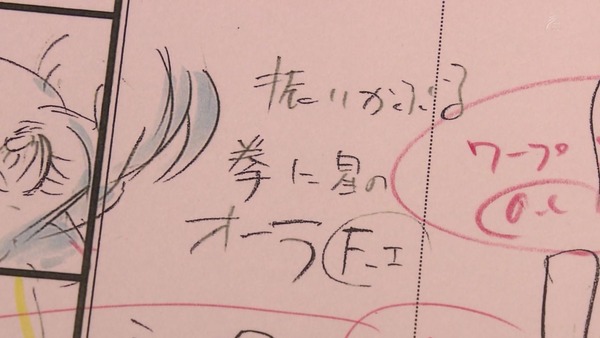 振りかぶる
拳に星の
オーラ F.I
ワープ
O.L